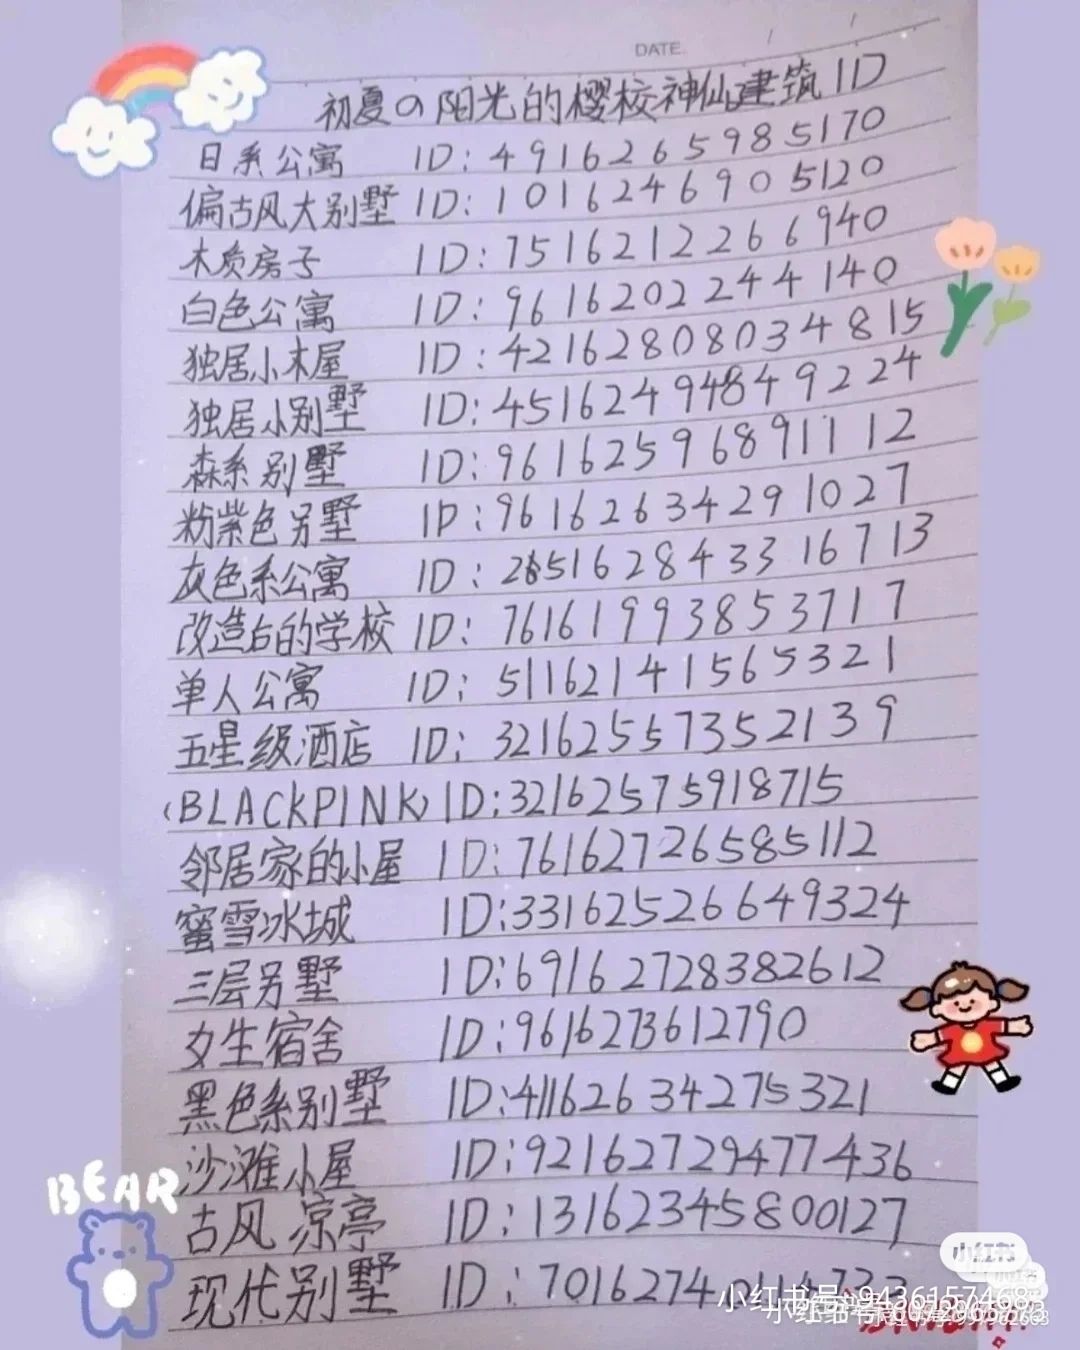 DATE.
初夏の阳光的樱校神仙建筑ID
日系公寓 ID:4916265985170
偏古风大别墅 ID:1016246905120
木质房子 ID:7516212266940
白色公寓 ID:9616202244140
独居小木屋 ID:42162808034815
独居小别墅 ID:45162494849224
森系别墅 ID:96162596891112
粉紫色别墅 ID:96162634291027
灰色系公寓 ID:265162843316713
改造后的学校 ID:76161993853717
单人公寓 ID:51162141565321
五星级酒店 ID:32162557352139
(BLACKPINK) ID:32162575918715
邻居家的小屋 ID:76162726585112
蜜雪冰城 ID:33162526649324
三层别墅 ID:69162728382612
女生宿舍 ID:9616273612790
黑色系别墅 ID:41162634275321
沙滩小屋 ID:92162729477436
BEAR
古风凉亭 ID:13162345800127
现代别墅 ID:7016274
小红书
小红书
小红书号:9436157468